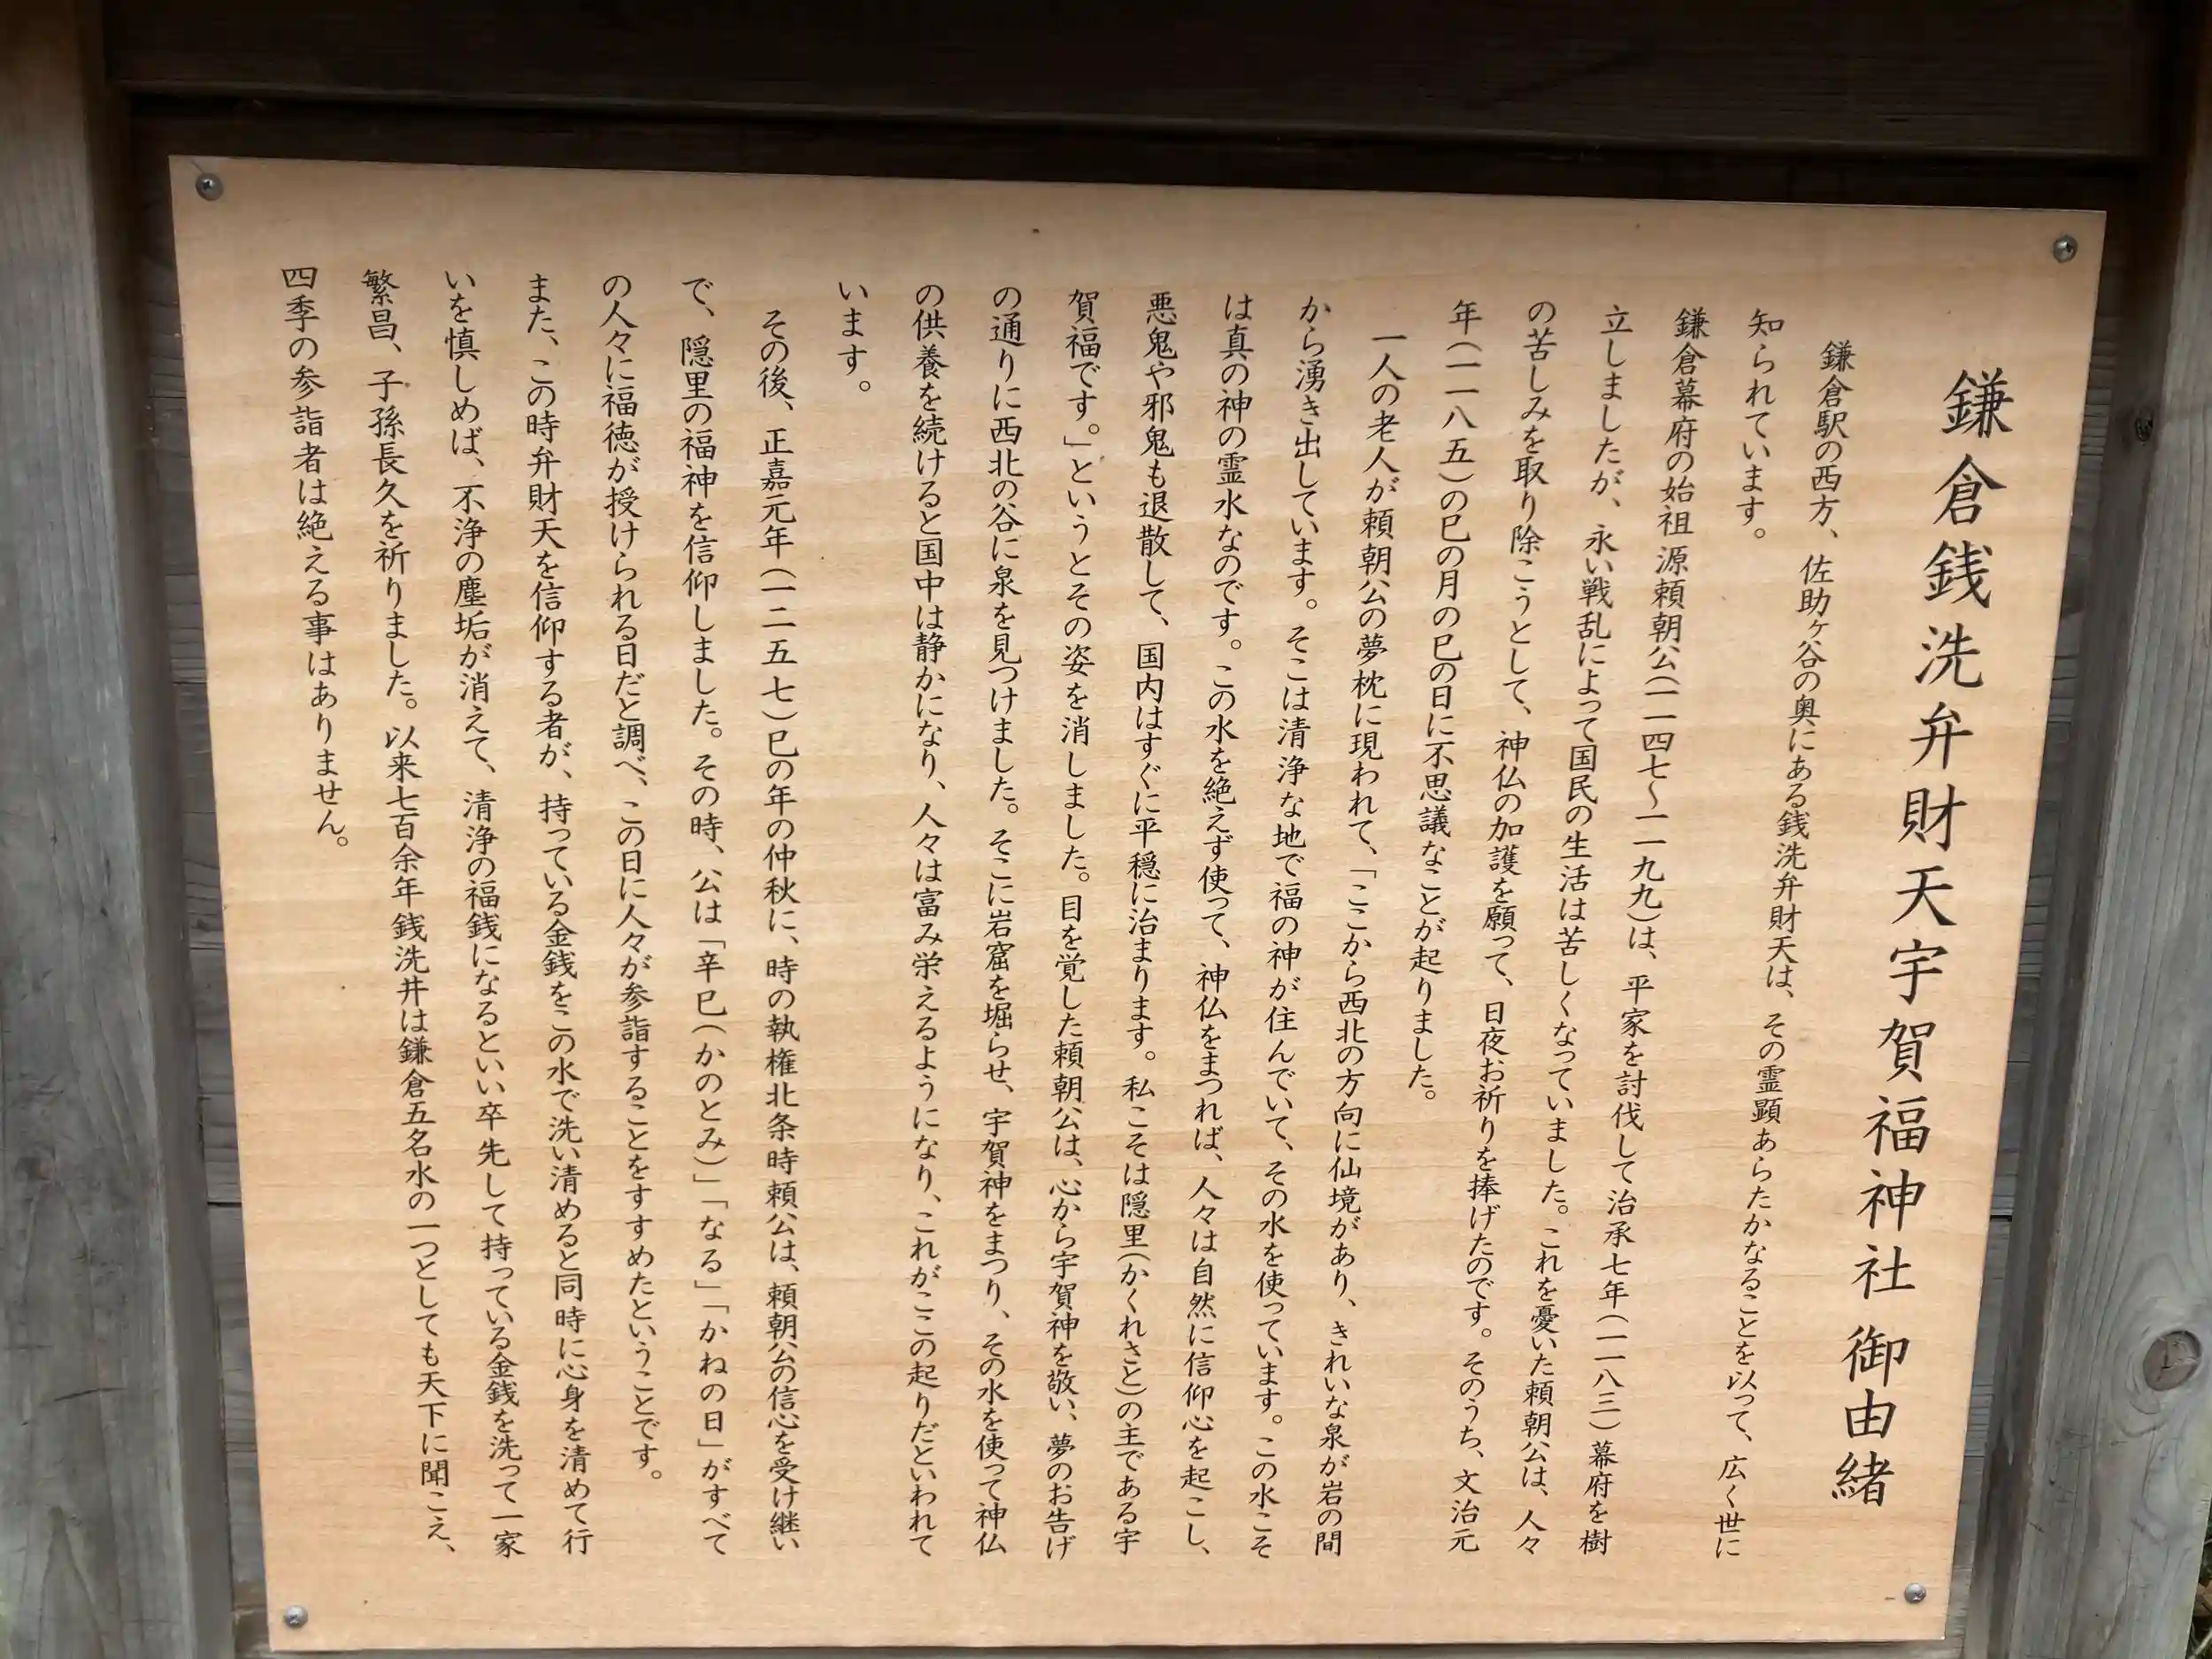 鎌倉銭洗弁財天宇賀福神社 御由緒
鎌倉駅の西方、佐助ヶ谷の奥にある銭洗弁財天は、その霊顕あらたかなることを以って、広く世に
知られています。
鎌倉幕府の始祖 源頼朝公(一一四七〜一一九九)は、平家を討伐して治承七年(一一八三)幕府を樹
立しましたが、永い戦乱によって国民の生活は苦しくなっていました。これを憂いた頼朝公は、人々
の苦しみを取り除こうとして、神仏の加護を願って、日夜お祈りを捧げたのです。そのうち、文治元
年(一一八五)の巳の月の巳の日に不思議なことが起りました。
一人の老人が頼朝公の夢枕に現われて、「ここから西北の方向に仙境があり、きれいな泉が岩の間
から湧き出しています。そこは清浄な地で福の神が住んでいて、その水を使っています。この水こそ
は真の神の霊水なのです。この水を絶えず使って、神仏をまつれば、人々は自然に信仰心を起こし、
悪鬼や邪鬼も退散して、国内はすぐに平穏に治まります。私こそは隠里(かくれさと)の主である宇
賀福です。」というとその姿を消しました。目を覚した頼朝公は、心から宇賀神を敬い、夢のお告げ
の通りに西北の谷に泉を見つけました。そこに岩窟を堀らせ、宇賀神をまつり、その水を使って神仏
の供養を続けると国中は静かになり、人々は富み栄えるようになり、これがここの起りだといわれて
います。
その後、正嘉元年(一二五七)巳の年の仲秋に、時の執権北条時頼公は、頼朝公の信心を受け継い
で、隠里の福神を信仰しました。その時、公は「辛巳(かのとみ)」「なる」「かねの日」がすべて
の人々に福徳が授けられる日だと調べ、この日に人々が参詣することをすすめたということです。
また、この時弁財天を信仰する者が、持っている金銭をこの水で洗い清めると同時に心身を清めて行
いを慎しめば、不浄の塵垢が消えて、清浄の福銭になるといい卒先して持っている金銭を洗って一家
繁昌、子孫長久を祈りました。以来七百余年銭洗井は鎌倉五名水の一つとしても天下に聞こえ、
四季の参詣者は絶える事はありません。